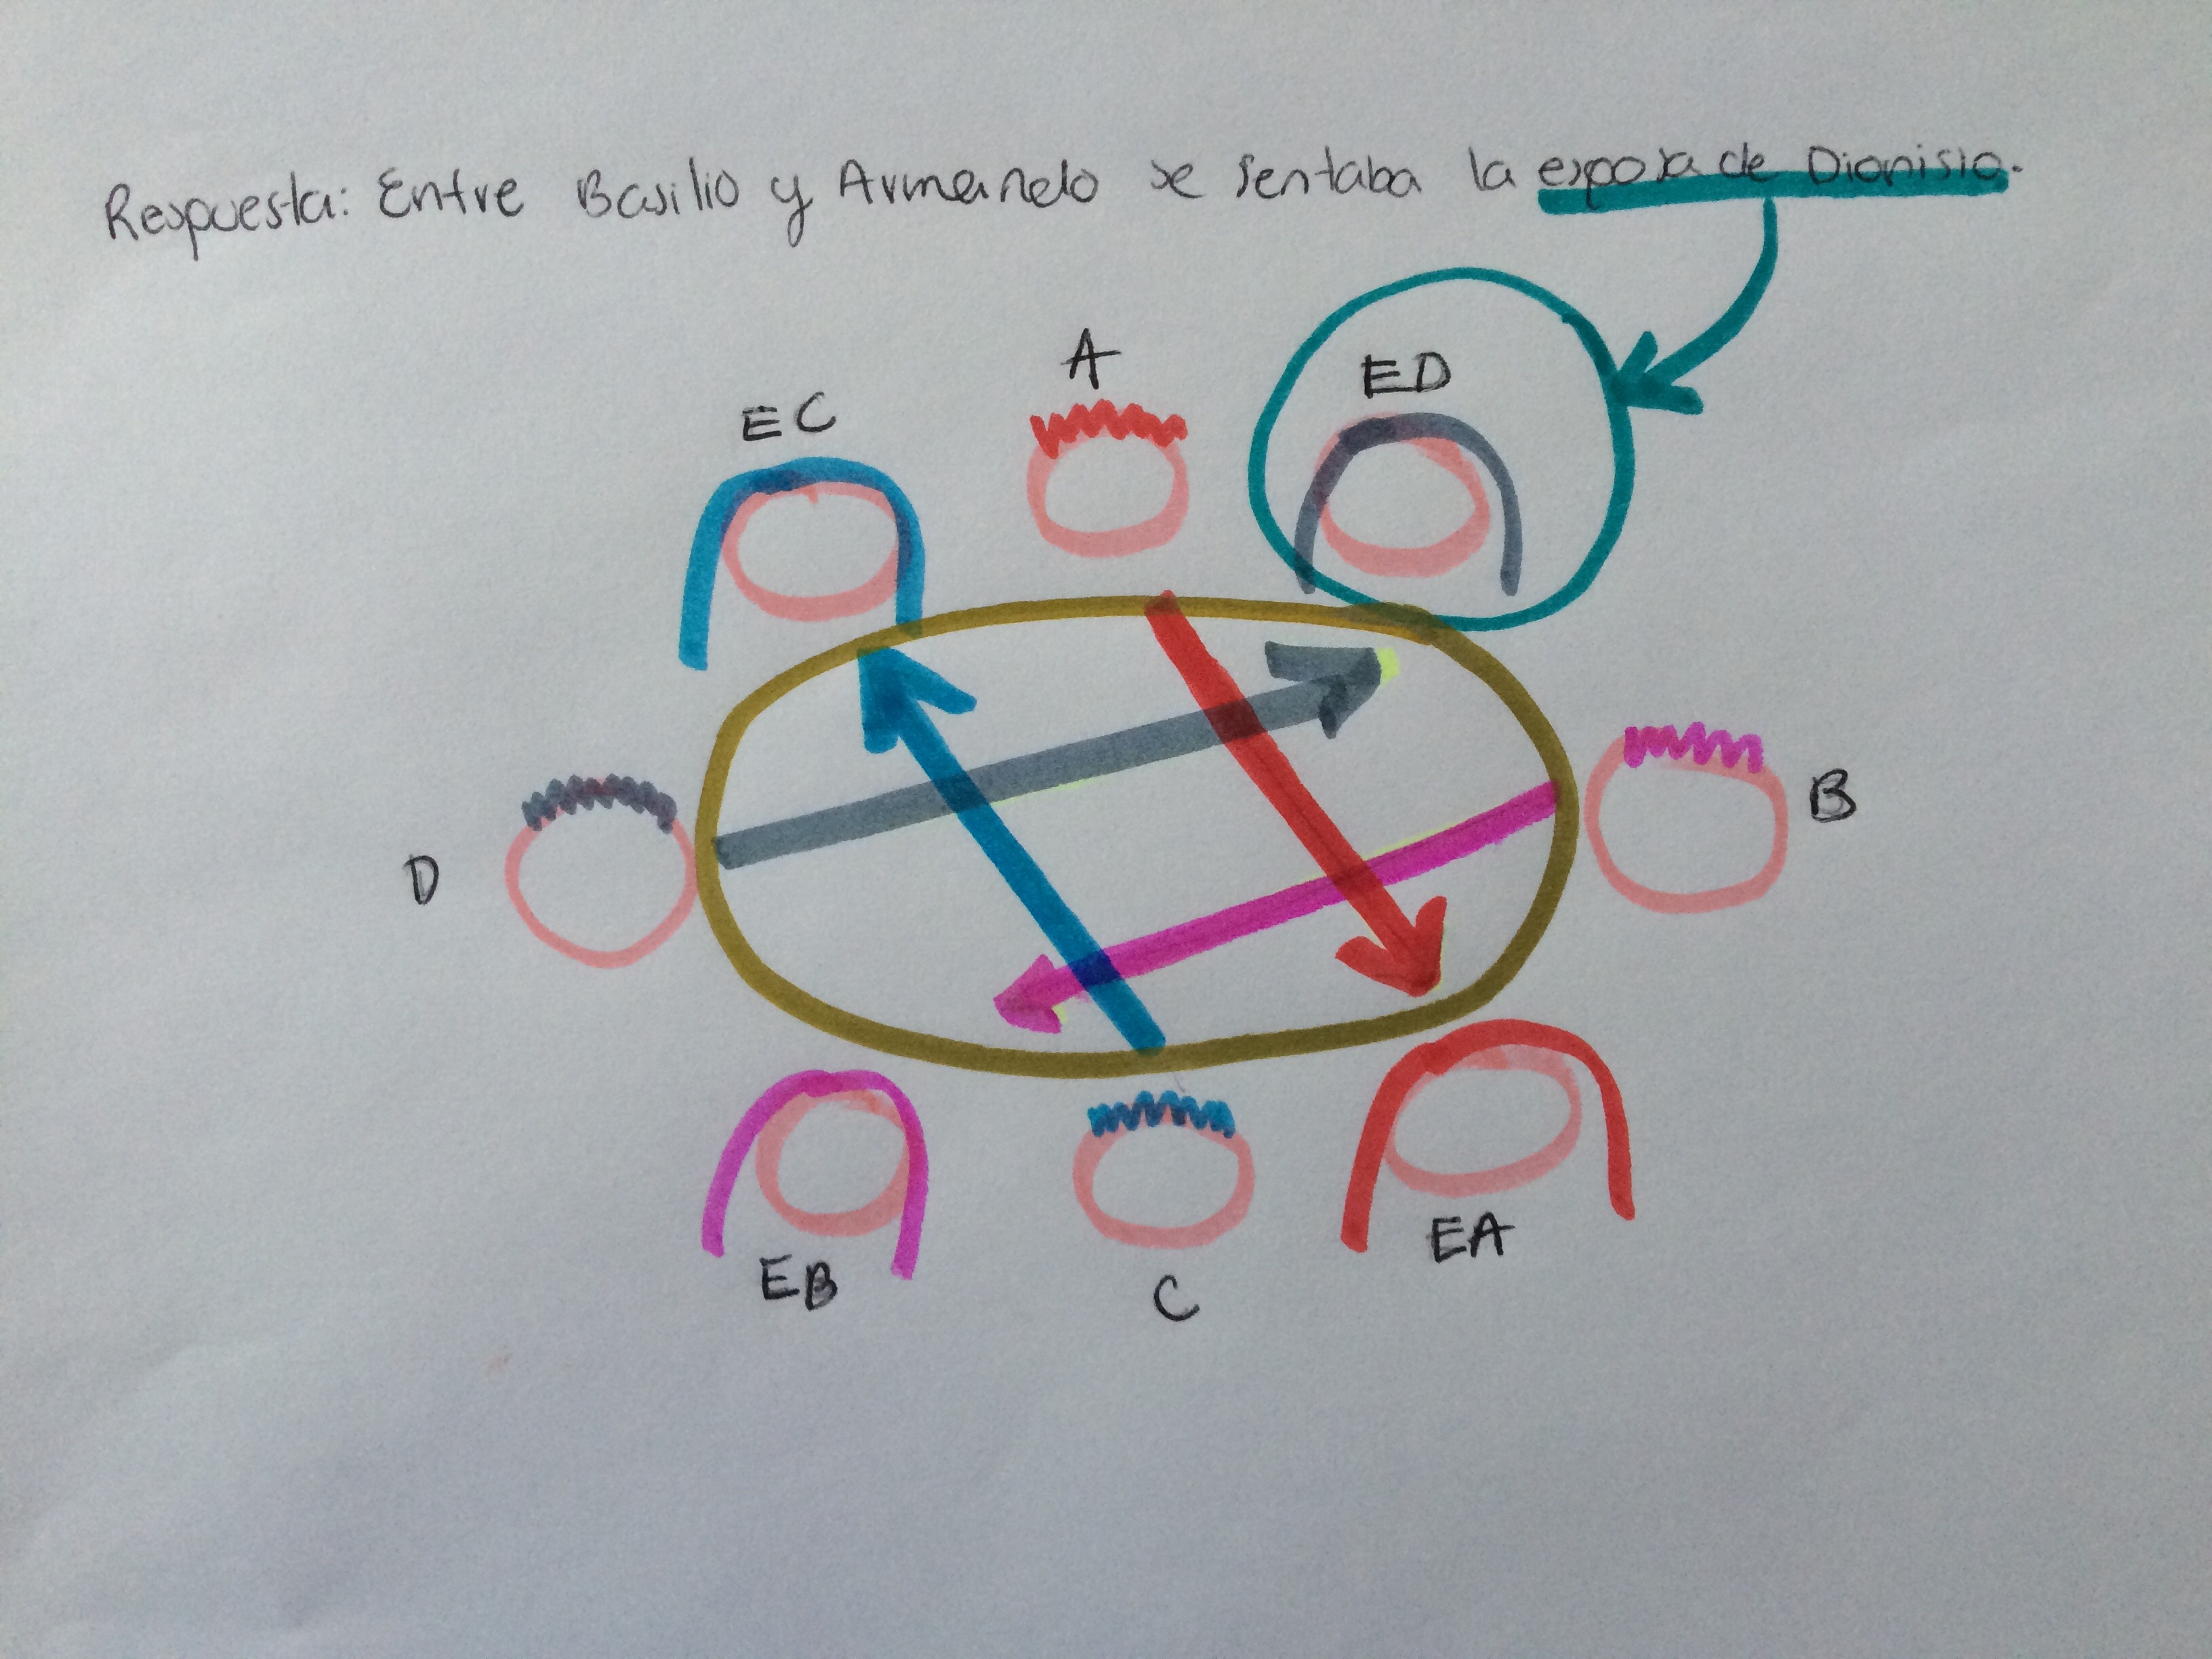 Respuesta: Entre Basilio y Armando se sentaba la esposa de Dionisio.
A
ED
EC
B
D
EA
EB
C